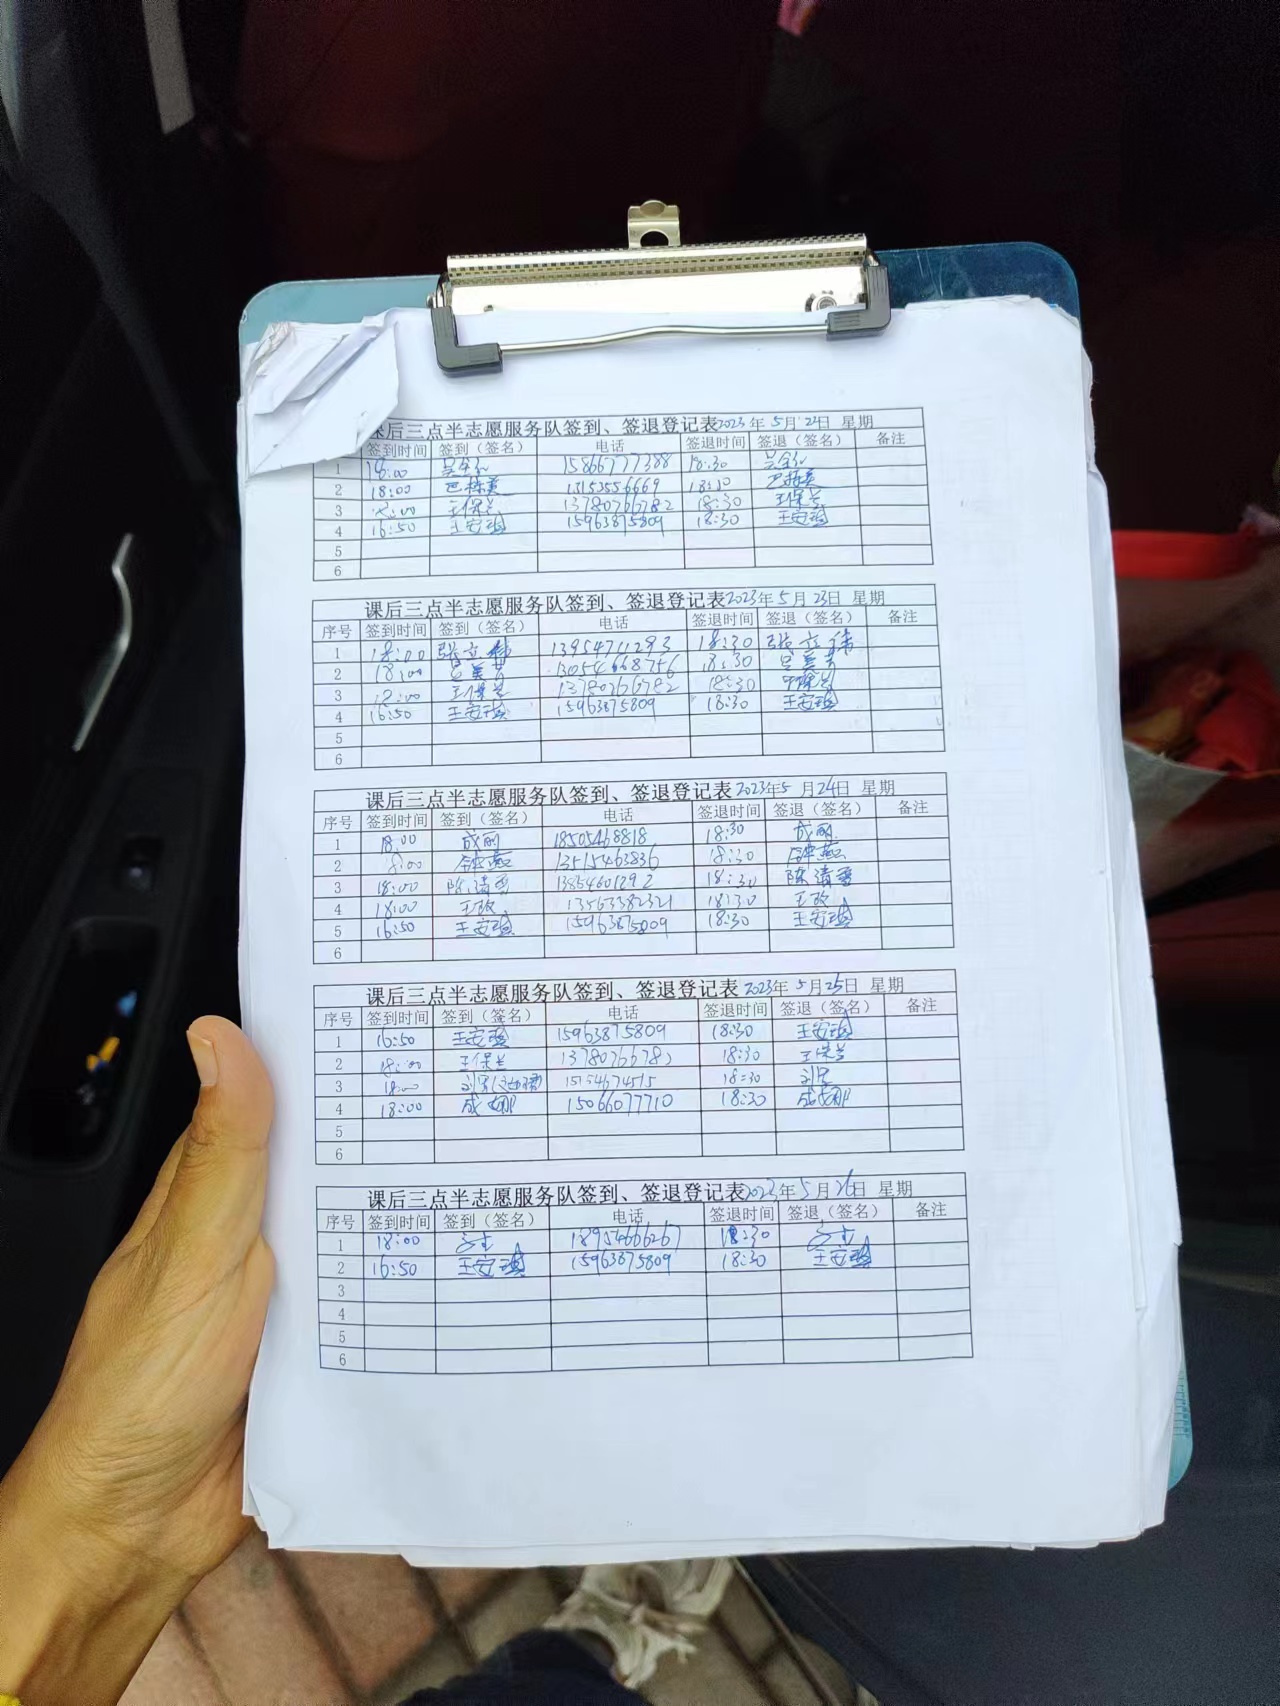 课后三点半志愿服务队签到、签退登记表2023年5月22日 星期
签到时间 签到（签名） 电话 签退时间 签退（签名） 备注
1 18:00 15866777388 18:30
2 18:00 18:30
3 18:00 王保兰 13780766782 18:30 王保兰
4 16:50 王安琪 15963875809 18:30 王安琪
5
6
课后三点半志愿服务队签到、签退登记表2023年5月23日 星期
序号 签到时间 签到（签名） 电话 签退时间 签退（签名） 备注
1 18:00 张立伟 13954711293 18:30 张立伟
2 18:00 吕美芳 13054668756 18:30 吕美芳
3 18:00 王保兰 13780766782 18:30
4 16:50 王安琪 15963875809 18:30 王安琪
5
6
课后三点半志愿服务队签到、签退登记表2023年5月24日 星期
序号 签到时间 签到（签名） 电话 签退时间 签退（签名） 备注
1 18:00 成丽 18505468818 18:30 成丽
2 18:00 钟燕 13515463836 18:30 钟燕
3 18:00 陈清雪 13854601292 18:30 陈清雪
4 18:00 王政 13563382321 18:30 王政
5 16:50 王安琪 15963875809 18:30 王安琪
6
课后三点半志愿服务队签到、签退登记表2023年5月25日 星期
序号 签到时间 签到（签名） 电话 签退时间 签退（签名） 备注
1 16:50 王安琪 15963875809 18:30 王安琪
2 18:00 王保兰 18:30 王保兰
3 18:00 18:30
4 18:00 成娜 15066077710 18:30 成娜
5
6
课后三点半志愿服务队签到、签退登记表2023年5月26日 星期
序号 签到时间 签到（签名） 电话 签退时间 签退（签名） 备注
1 18:00 18954666267 18:30
2 16:50 王安琪 15963875809 18:30 王安琪
3
4
5
6